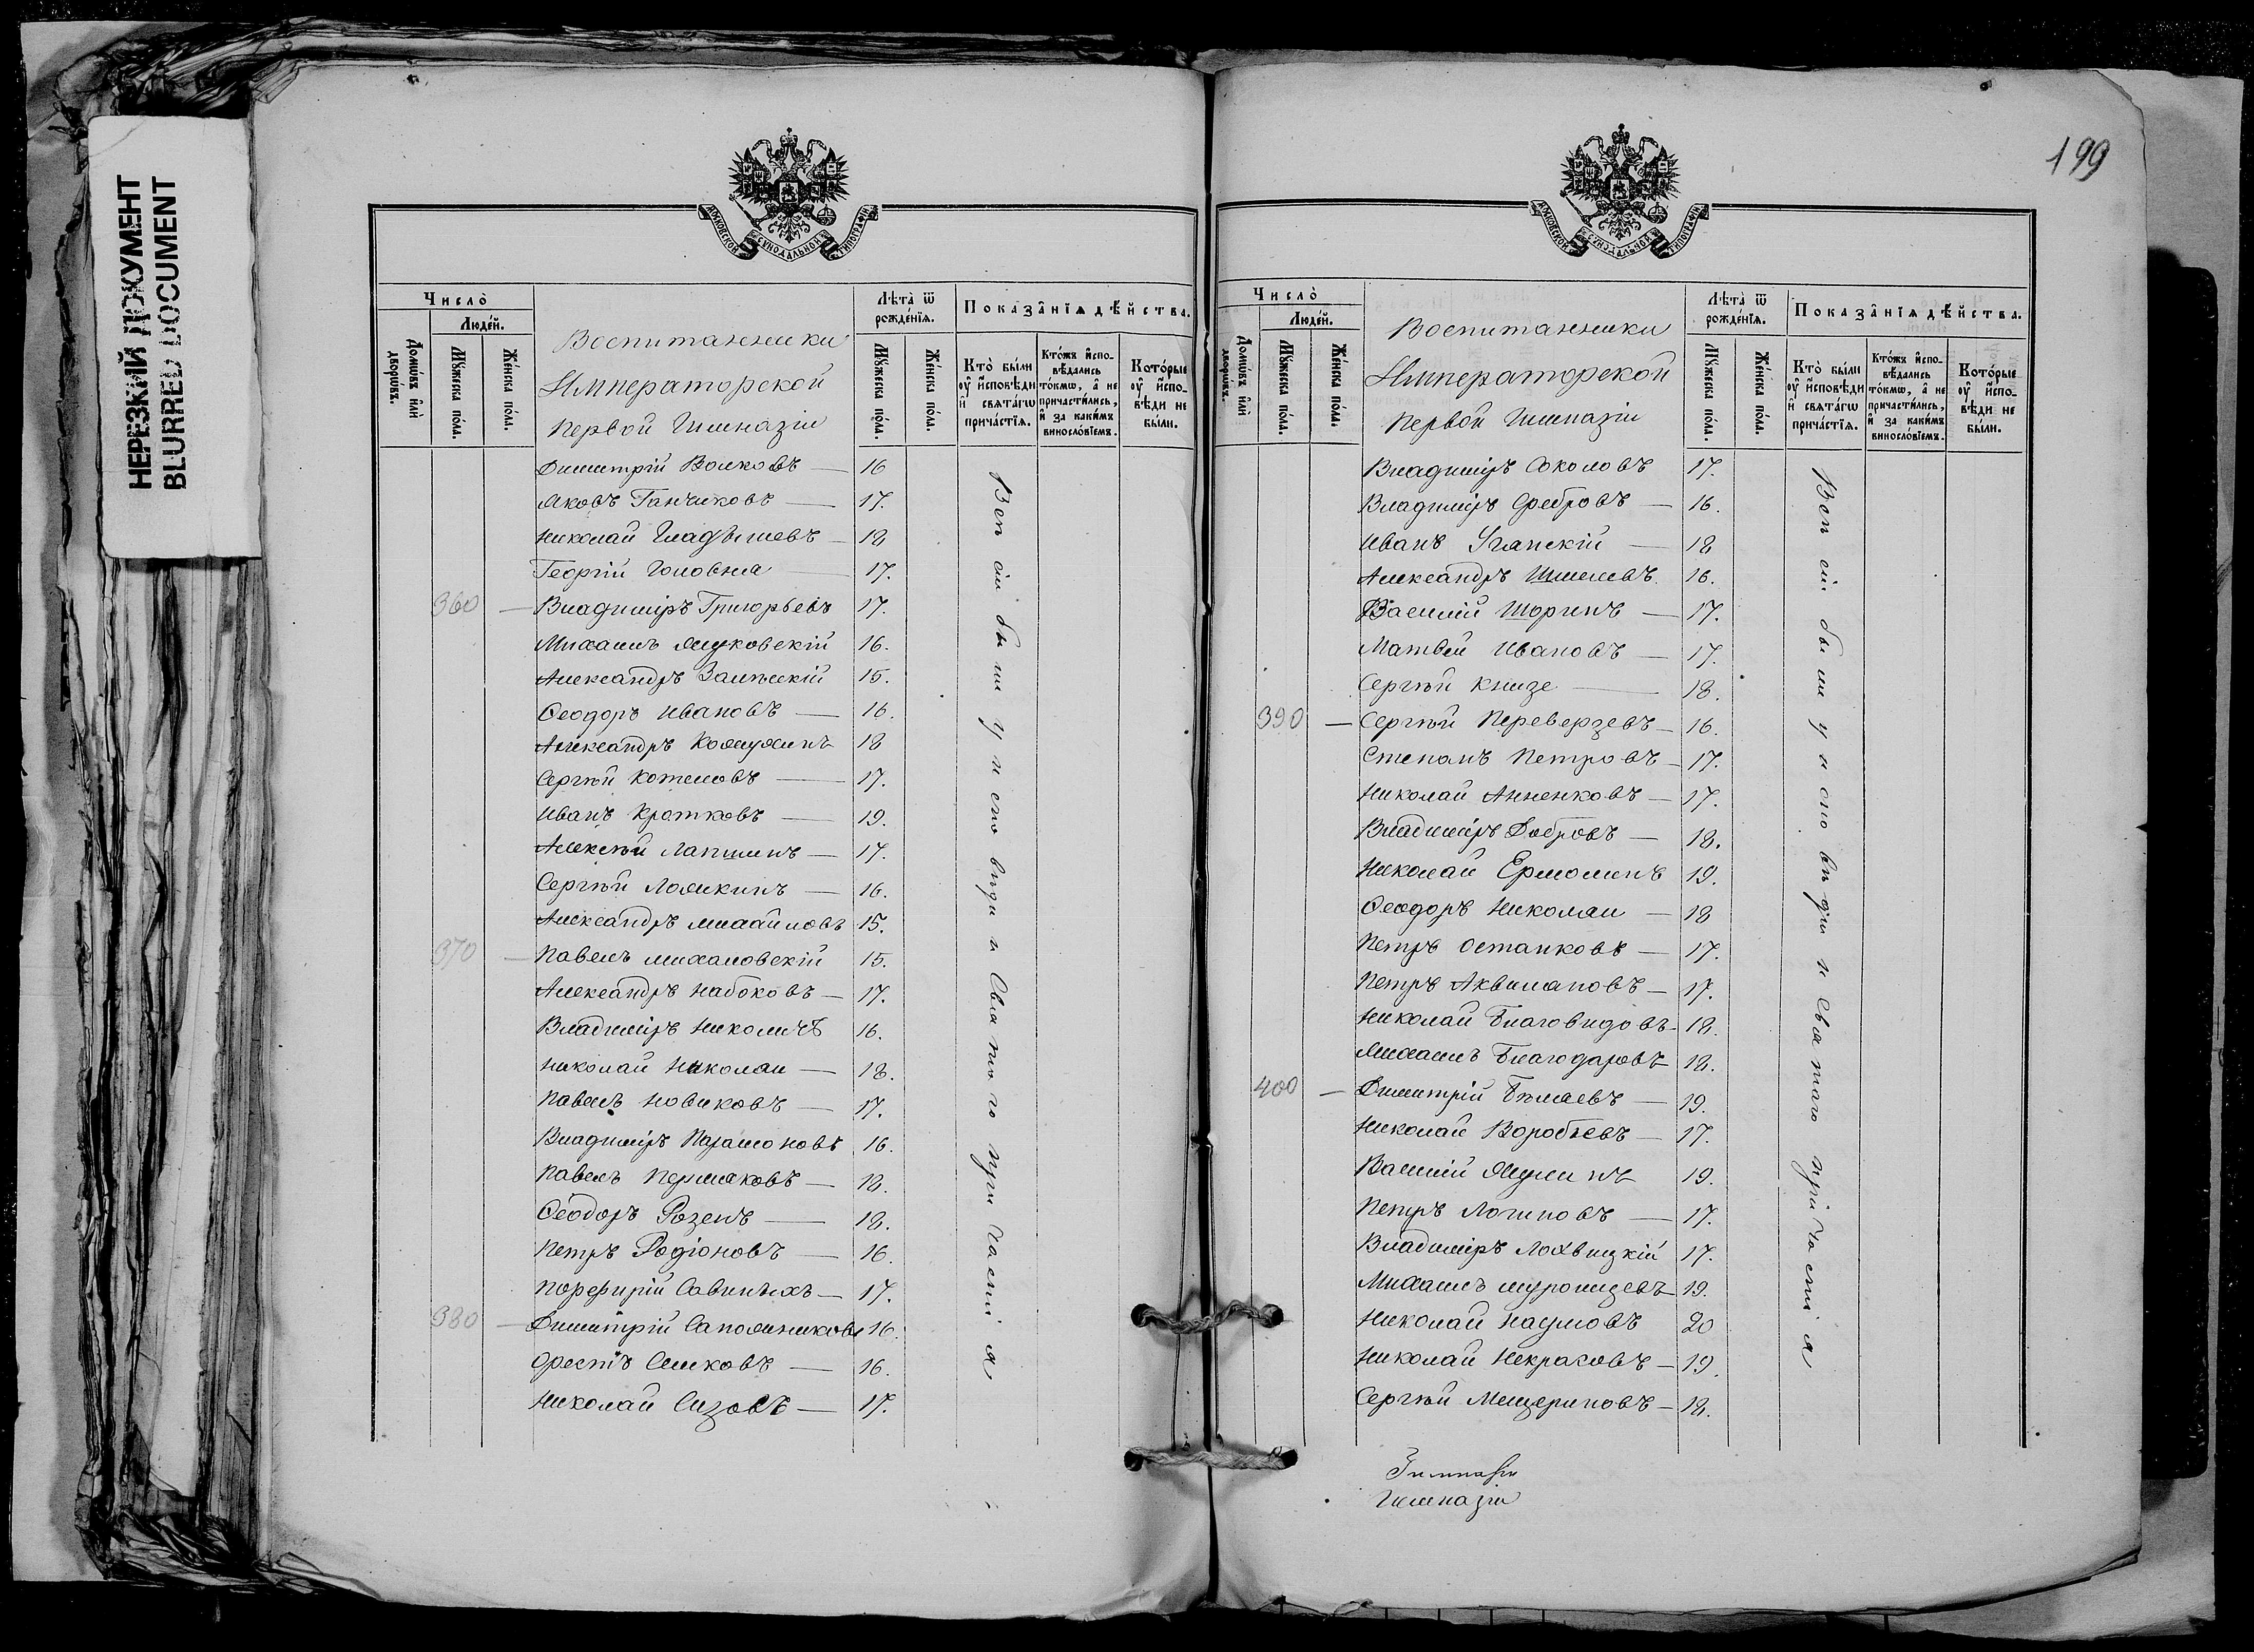 НЕРЕЗКИЙ ДОКУМЕНТ
BLURRED DOCUMENT
МОСКОВСКОЙ СѴНОДАЛЬНОЙ ТИПОГРАФІИ
Число̀
Люде́й.
Домѡ́въ и҆лѝ дворѡ́въ.
Мꙋ́жеска по́ла.
Же́нска по́ла.
Воспитанники
Императорской
первой Гимназіи
Лѣ́та ѿ рожде́нїѧ.
Мꙋ́жеска по́ла.
Же́нска по́ла.
Показа̑нїѧ дѣ́йства.
Кто̀ бы́ли
ᲂу҆ и҆сповѣ́ди
и҆ свѧта́гѡ
прича́стїѧ.
Кто́жъ и҆спо-
вѣ́дались
то́кмѡ, а҆ не
причасти́лись,
и҆ за каки́мъ
винословїемъ.
Кото́рые
ᲂу҆ и҆спо-
вѣ́ди не
бы́ли.
Димитрій Волковъ — 16
Яковъ Ганчиковъ — 17.
Николай Гладышевъ — 18
Георгій Головня — 17.
360 — Владиміръ Григорьевъ 17.
Михаилъ Жуковскій 16.
Александръ Залѣскій 15.
Ѳеодоръ Ивановъ — 16.
Александръ Кожухинъ 18
Сергѣй Котеловъ — 17.
Иванъ Кротковъ — 19.
Алексѣй Лапшинъ — 17.
Сергѣй Ложкинъ — 16.
Александръ Михайловъ 15.
370 — Павелъ Михаловскій 15.
Александръ Набоковъ — 17.
Владиміръ Николичъ 16.
Николай Николаи — 18.
Павелъ Новиковъ — 17.
Владиміръ Парамоновъ 16.
Павелъ Пермяковъ — 18.
Ѳеодоръ Розенъ — 18.
Петръ Родіоновъ — 16.
Порфирій Савиныхъ — 17.
380 — Димитрій Сапожниковъ 16.
Орестъ Семковъ — 16.
Николай Сизовъ — 17.
Всѣ сіи были у исповѣди и Святаго причастія
199
МОСКОВСКОЙ СѴНОДАЛЬНОЙ ТИПОГРАФІИ
Число̀
Люде́й.
Домѡ́въ и҆лѝ дворѡ́въ.
Мꙋ́жеска по́ла.
Же́нска по́ла.
Воспитанники
Императорской
первой Гимназіи
Лѣ́та ѿ рожде́нїѧ.
Мꙋ́жеска по́ла.
Же́нска по́ла.
Показа̑нїѧ дѣ́йства.
Кто̀ бы́ли
ᲂу҆ и҆сповѣ́ди
и҆ свѧта́гѡ
прича́стїѧ.
Кто́жъ и҆спо-
вѣ́дались
то́кмѡ, а҆ не
причасти́лись,
и҆ за каки́мъ
винословїемъ.
Кото́рые
ᲂу҆ и҆спо-
вѣ́ди не
бы́ли.
Владиміръ Соколовъ 17.
Владиміръ Сребровъ — 16.
Иванъ — 18
Александръ Шмелевъ. 16.
Василій Шоринъ — 17.
Матвей Ивановъ — 17.
Сергѣй Книзе — 18.
390 — Сергѣй Переверзевъ — 16.
Степанъ Петровъ — 17.
Николай Анненковъ — 17.
Владиміръ Добровъ — 18.
Николай Ермолинъ 19.
Ѳеодоръ Николаи — 18
Петръ Останковъ — 17.
Петръ Аквилановъ — 17.
Николай Благовидовъ — 18.
Михаилъ Благодаровъ 18.
400 — Димитрій Бѣляевъ — 19.
Николай Воробьевъ — 17.
Василій 19.
Петръ Логиновъ — 17.
Владиміръ Лохвицкій 17.
Михаилъ Муромцевъ 19.
Николай Наумовъ 20
Николай Некрасовъ — 19.
Сергѣй Мещериновъ — 18.
Всѣ сіи были у исповѣди и Святаго причастія
Гимназіи
Гимназіи